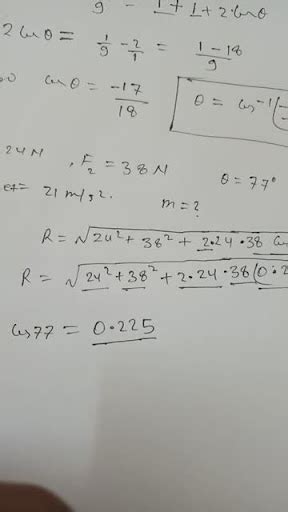 1/9 = 1 + 1 + 2 cosθ
2 cosθ = 1/9 - 2/1 = 1-18/9
cosθ = -17/18 θ = cos⁻¹(
24N , F₂ = 38 N θ = 77°
21 m/s². m = ?
R = √24² + 38² + 2.24.38 cos
R = √24² + 38² + 2.24.38(0.2
cos77 = 0.225